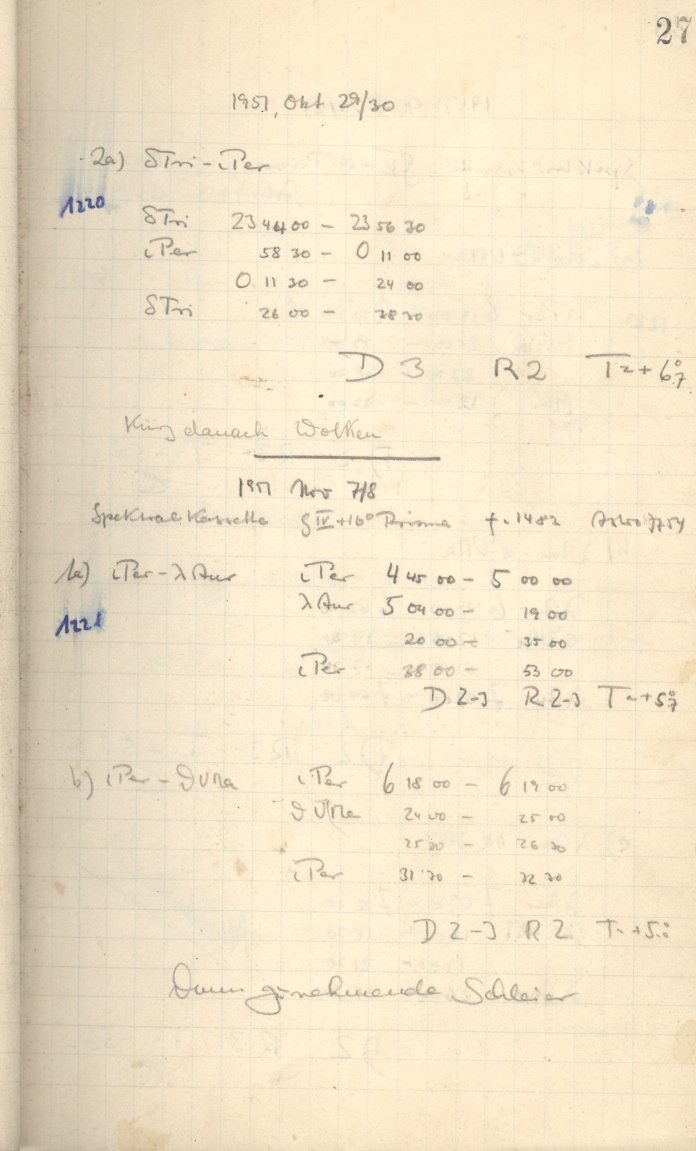 27
1951, Okt 29/30
2a) δTri-ιPer
1220
δTri 23 44 00 - 23 56 30
ιPer 58 30 - 0 11 00
0 11 30 - 24 00
δTri 26 00 - 38 30
D 3 R 2 T = + 6°.7
Kurz danach Wolken
1951 Nov 7/8
Spektralkassette g IV + 16° Prisma f. 1482 Astro
1a) ιPer-λ Aur ιPer 4 45 00 - 5 00 00
λ Aur 5 04 00 - 19 00
1221
20 00 - 35 00
ιPer 38 00 - 53 00
D 2-3 R 2-3 T = +5°.7
b) ιPer - ϑ UMa ιPer 6 18 00 - 6 19 00
ϑ UMa 24 00 - 25 00
25 30 - 26 30
ιPer 31 30 - 32 30
D 2-3 R 2 T = +5°.
Dann zunehmende Schleier